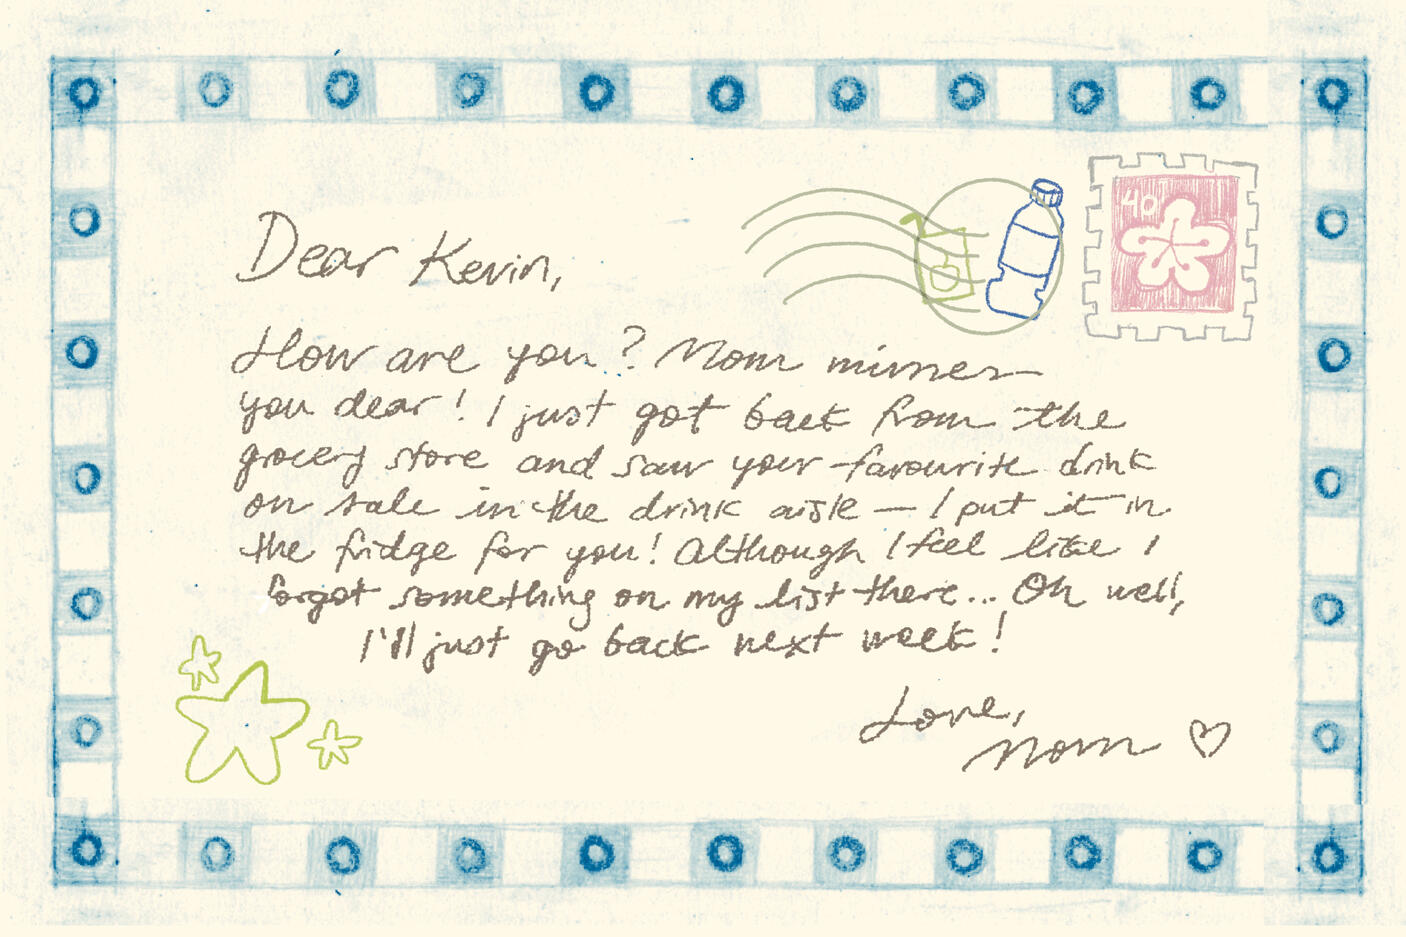 40
Dear Kevin,
How are you? Mom misses
you dear! I just got back from the
grocery store and saw your favourite drink
on sale in the drink aisle — I put it in
the fridge for you! Although I feel like I
forgot something on my list there... Oh well,
I'll just go back next week!
Love,
Mom ♡